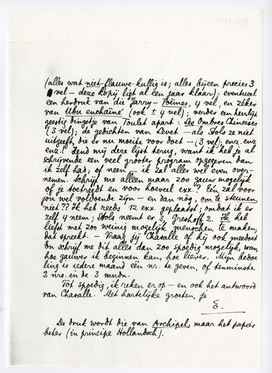 (alles wat niet-flauwe-kullig is; alles bijeen precies 3
vel – deze kopij ligt al een jaar klaar); eventueel
een herdruk van die Jarry-Poèmes, 4 vel, en zeker
van Ubu enchaîné (ook ± 4 vel); verder een heerlijk
geestig dingetje van Toulet apart: Les Ombres Chinoises
(3 vel); de gedichten van Levet – als Stols ze niet
uitgeeft, die er nu mooite voor doet – (3 vel); enz. enz.
enz! Zend mij deze lijst terug, want ik heb je al
schrijvende een veel grooter program opgegeven dan
ik zelf had; of neen, ik zal alles wel even over-
nemen. Schrijf me alleen maar zoo gauw mogelijk
of je toetreedt en voor hoeveel exx.? Eén zal voor
jou wel voldoende zijn – en dan nòg, om te steunen,
niet?? Ik heb reeds 12 exx. geplaatst, omdat ik er
zelf 4 neem; Stols neemt er 2, Greshoff 2. Ik heb
liefst met zoo weinig mogelijk menschen te maken,
dat spreekt. – Vraag jij Chasalle of hij ook meedoet
en schrijf me dit alles dan zoo spoedig mogelijk, want
hoe gauwer ik beginnen kan, hoe liever. Mijn bedoe-
ling is iedere maand één nr. te geven, of tenminste
2 nrs. in de 3 mndn.
Tot spoedig, ik reken er op – en ook het antwoord
van Chasalle. Met hartelijke groeten, je
E.
De druk wordt die van Archipel, maar het papier
beter (in principe Hollandsch).